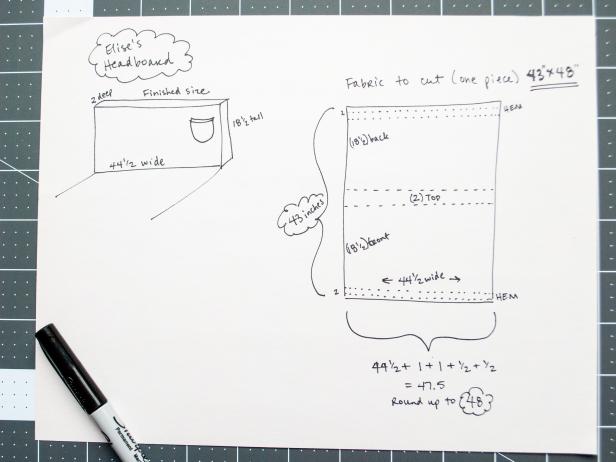 Elise's
Headboard
2 deep
Finished size
18 1/2 tall
44 1/2 wide
Fabric to cut (one piece) 43" x 48"
2
HEM
(18 1/2) back
(2) Top
43 inches
(18 1/2) front
← 44 1/2 wide →
2
HEM
44 1/2 + 1 + 1 + 1/2 + 1/2
= 47.5
Round up to 48